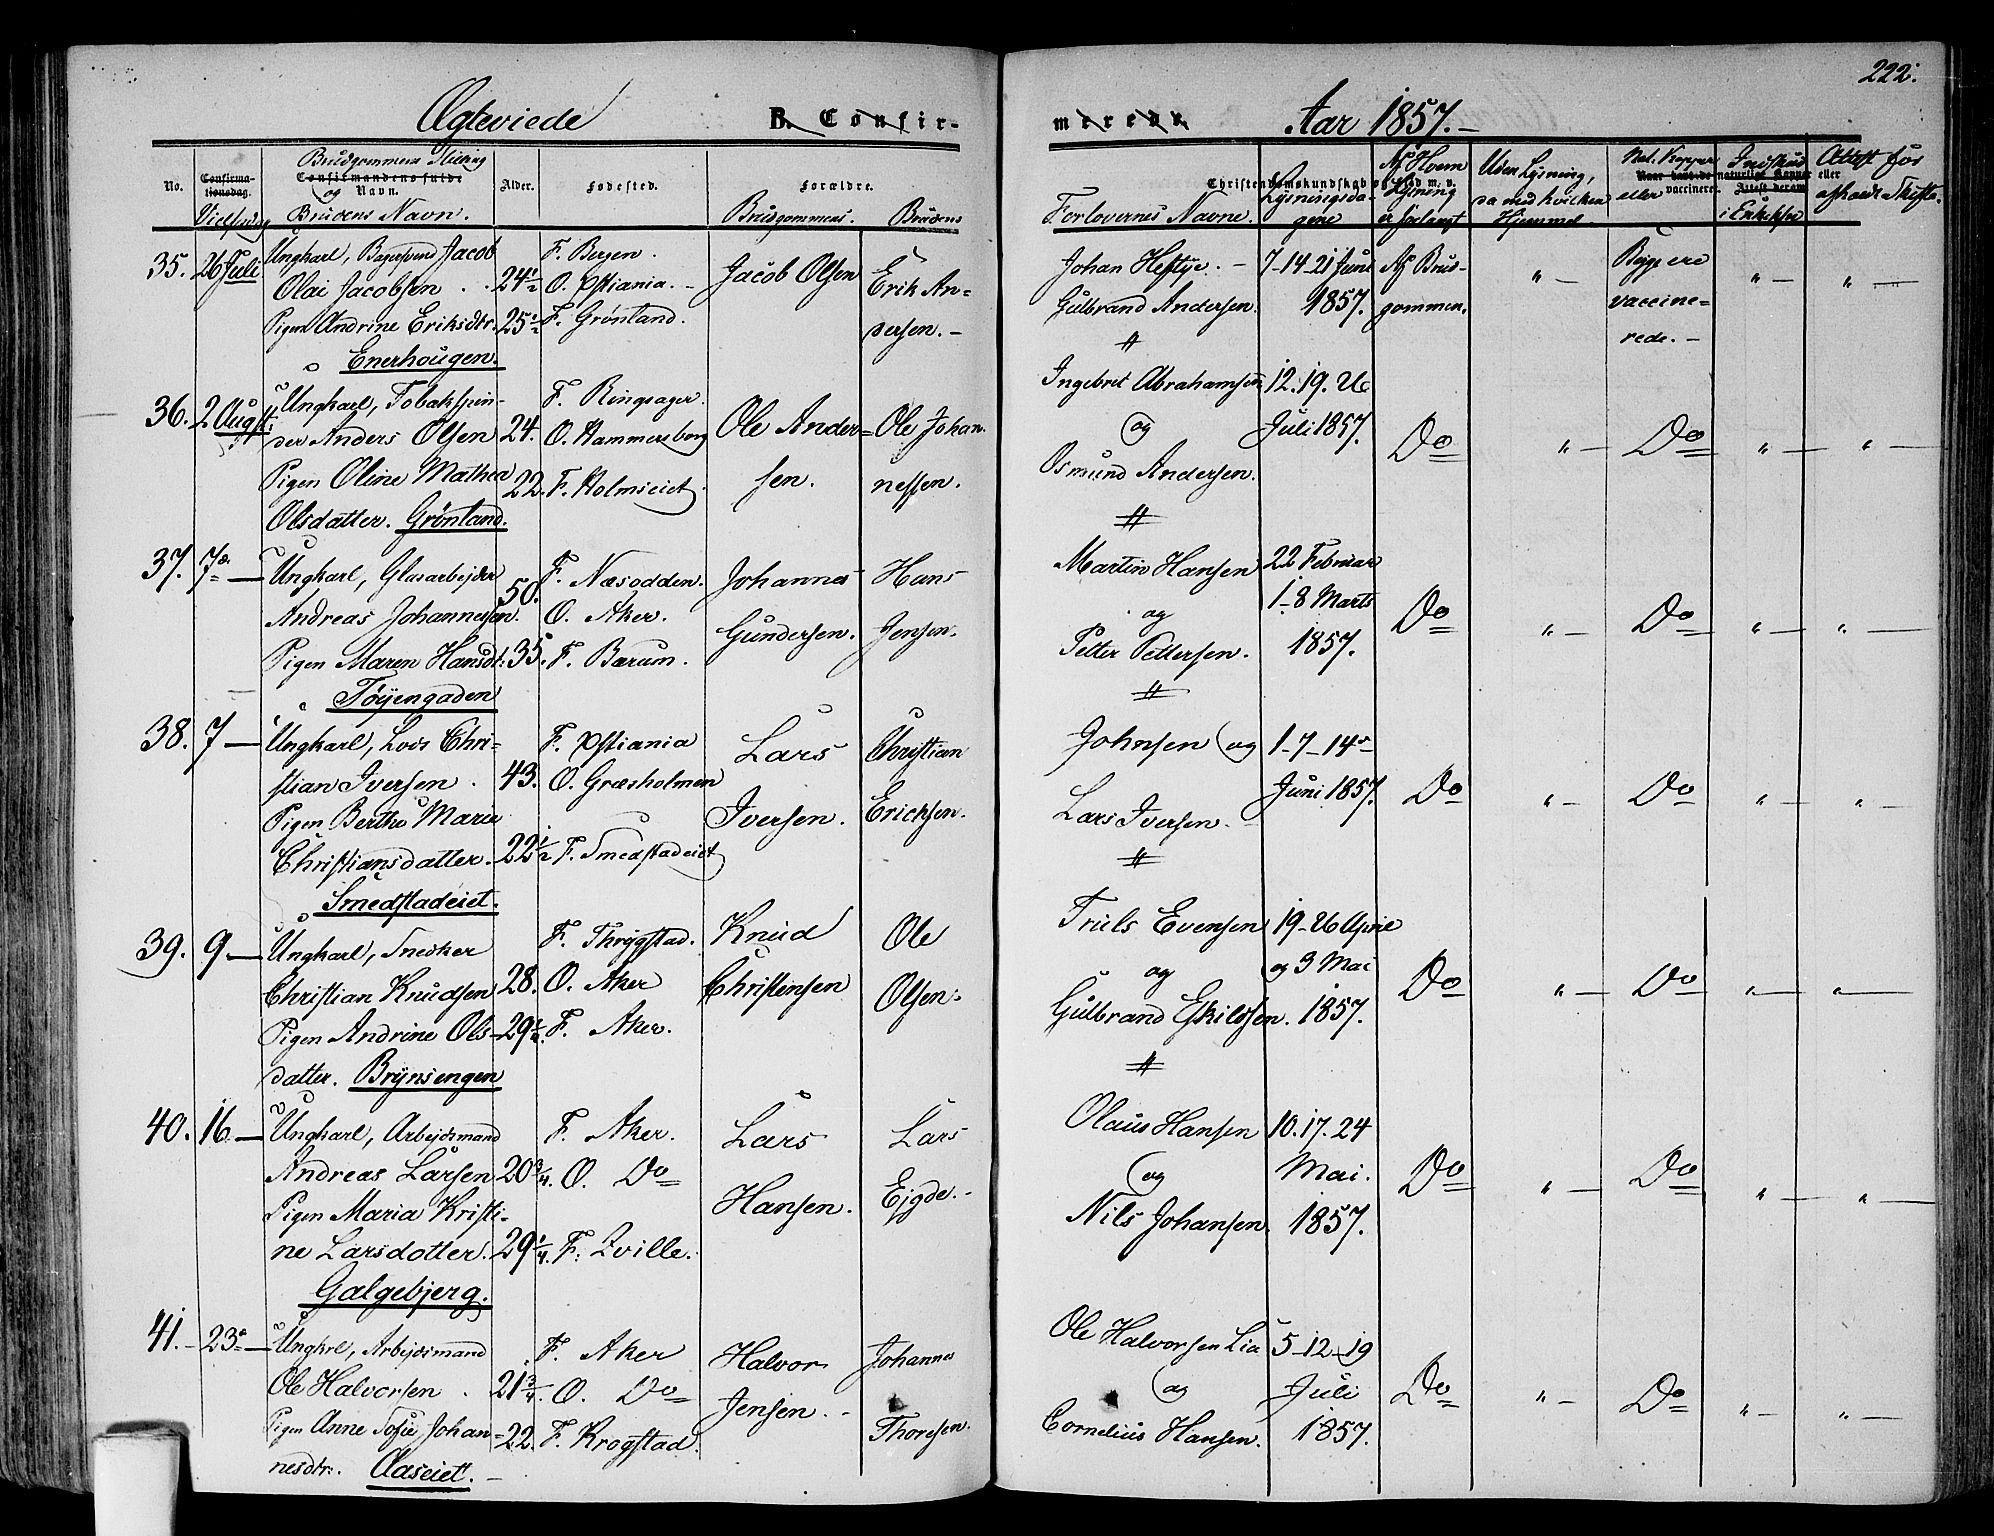 222.
Ægteviede B. Confir-
merede. Aar 1857.-
No.
Confirma-
tionsdag.
Vielsesdag
Brudgommens Stilling
Confirmandens fulde
og Navn.
Brudens Navn.
Alder.
Fødested.
Forældre.
Brudgommens. Brudens
Christendomskundskab og Flid m. v.
Forlovernes Navne.
Lysningsda-
gene
Af Hvem
Lysning
er forlangt
Uden Lysning,
da med hvilken
Hjemmel
Nat. Kopper
eller
vaccineret
naturlige Kopper
Attest derom
Indskud
i Enkeksse
Attest for
eller
afholdt Skifte.
35. 26 Juli Ungkarl, Bagersvend Jacob
Olai Jacobsen . . 24 1/2
Pigen Andrine Eriksdtr. 25 1/2
Enerhougen.
F. Bergen.
O. Xstiania.-
F. Grønland.
Jacob Olsen
Erik An-
dersen.-
Johan Heftye. -
Gulbrand Andersen.
7-14-21 Juni
1857.
Af Brud-
gommen.
" -
Begge ere
vaccine=
rede.-
" -
" -
36. 2 August. Ungkarl, Tobakspin-
der Anders Olsen 24.
Pigen Oline Mathea 22.
Olsdatter. Grønland.
F. Ringsager.
O. Hammersborg
F. Holmseiet.
Ole Ander=
sen.
Ole Johan
nessen.
Ingebret Abrahamsen
og
Osmund Andersen.
12.19.26
Juli 1857.
Do
" -
Do
" -
" -
37. 7de - Ungkarl, Glasarbejder
Andreas Johannessen. 50.
Pigen Maren Hansdt. 35.
Tøyengaden
F. Næsodden.
O. Aker.
F. Bærum.
Johannes
Gundersen.
Hans
Jensen.
Martin Hansen
og
Petter Pettersen.
22 Februar
1-8 Marts
1857.
Do
" -
Do
" -
" -
38. 7 - Ungkarl, Lods Chri-
stian Iversen. 43.
Pigen Berthe Marie
Christiansdatter. 22 1/2
Smedstadeiet.
F. Xstiania
O. Græsholmen
F. Smedstadeiet
Lars
Iversen.
Christian
Ericksen.
Johnsen og
Lars Iversen.
1-7-14
Juni 1857.
Do
" -
Do
" -
" -
39. 9 - Ungkarl, Snedker
Christian Knudsen 28.
Pigen Andrine Ols- 29 1/2
datter. Brynsengen
F. Thrygstad.
O. Aker
F. Aker.
Knud
Christensen
Ole
Olsen.
Truls Evensen
og
Gulbrand Eskildsen.
19-26 April
og 3 Mai
1857.
Do
" -
Do
" -
" -
40. 16 - Ungkarl, Arbejdsmand
Andreas Larsen 20 3/4.
Pigen Maria Kristi-
ne Larsdotter. 29 1/4.
Galgebjerg.
F. Aker.
O. Do
F. Zville.
Lars
Hansen.
Lars
Ejgde.-
Olaus Hansen
og
Nils Johansen.
10.17.24
Mai.
1857.
Do
" -
Do
" -
" -
41. - 23 - Ungkrl, Arbejdsmand
Ole Halvorsen . 21 3/4.
Pigen Anne Sofie Johan- 22.
nesdtr. Aaseiet.-
F. Aker
O. Do
F. Krogstad.
Halvor
Jensen.-
Johannes
Thoresen.
Ole Halvorsen Lia
og
Cornelius Hansen.
5-12-19
Juli
1857.
Do
" -
Do
" -
" -